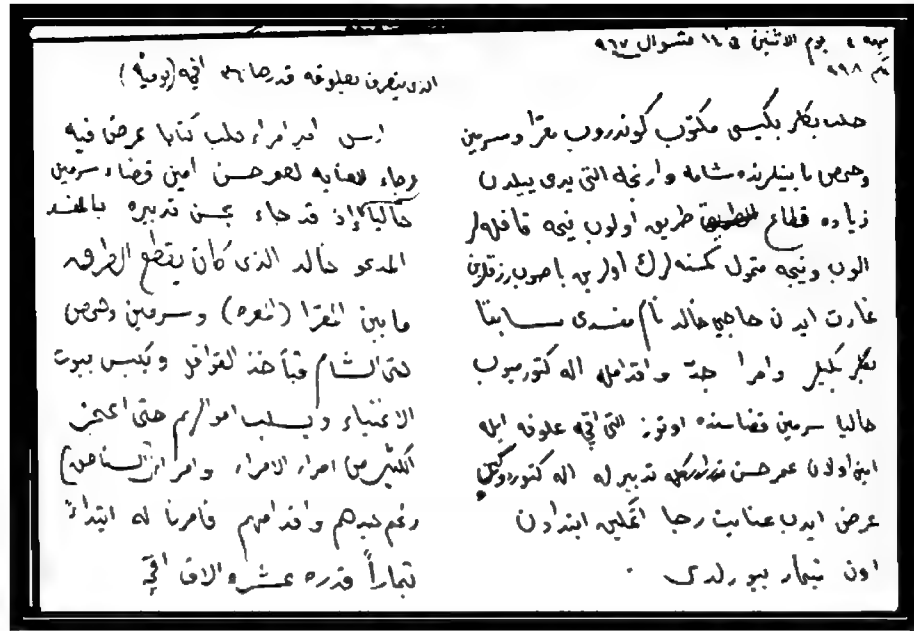 مهمه ٤ يوم الاثنين ١٤ شوال ٩٦٧
حكم ٩٩٨
حلب بكلر بكيسى مكتوب كوندروب معرا وسرمين
وحمص مابينلرنده شامه وارنجه التى يدى ييلدن
زياده قطاع طريق اولوب نيجه قافله لر
الوب ونيجه متمول كمسنه لرك اولرين باصوب رزقلرين
غارت ايدن حاجى خالد نام مفسدى سابقا
بكلر بكيلر وامرا جد واقدامله اله كتورميوب
حاليا سرمين قضاسنده اوتوز التى اقچه علوفه ايله
امين اولان عمر حسن تداركله تدبيرله اله كتوردوكين
عرض ايدوب عنايت رجا اتمكين ابتدادن
اون بيك تيمار بيورلدى
الذى يتصرف بعلوفه قدرها ٣٦ اقچه (يومية)
ارسل امير امراء حلب كتابا عرض فيه
وجاء للعنايه لعمر حسن امين قضاء سرمين
حاليا إذ قد جاء بحسن تدبيره بالمفسد
المدعو خالد الذى كان يقطع الطرق
مابين المعرا (المعره) وسرمين وحمص
حتى الشام فيأخذ القوافل ويكبس بيوت
الاغنياء ويسلب اموالهم حتى اعجز
الكثير من امراء الامراء وامراء (السناجق)
رغم جدهم واقدامهم فأمرنا له ابتداءً
تيماراً قدره عشره الاف اقچه